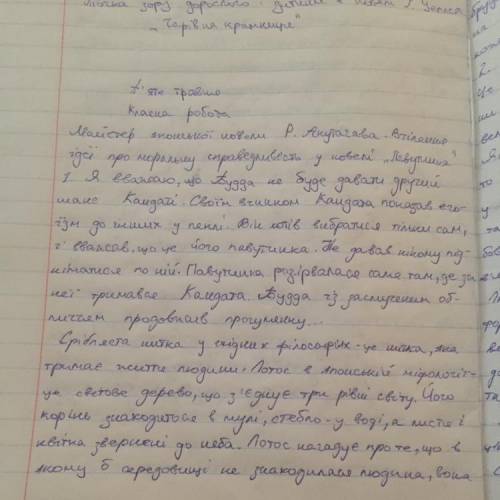 точка зору дорослого і дитини в повісті Г. Уеллса
„Чарівна крамниця"
П'яте травня
Класна робота
Майстер японської новели Р. Акутагава. Втілення
ідеї про моральну справедливість у новелі „Павутинка"
1. Я вважаю, що Будда не буде давати другий
шанс Кандаті. Своїм вчинком Кандата показав его-
їзм до інших у пеклі. Він хотів вибратися тільки сам,
і вважав, що це його павутинка. Не давав нікому під-
німатися по ній. Павутинка розірвалася саме там, де за
неї тримався Кандата. Будда із засмученим об-
личчям продовжив прогулянку...
Срібляста нитка у східних філософіях - це нитка, яка
тримає життя людини. Лотос в японській міфології-
це світове дерево, що з'єднує три рівні світу. Його
корінь знаходиться в мулі, стебло - у воді, а листя і
квітка звернені до неба. Лотос нагадує про те, що в
якому б середовищі не знаходилася людина, вона